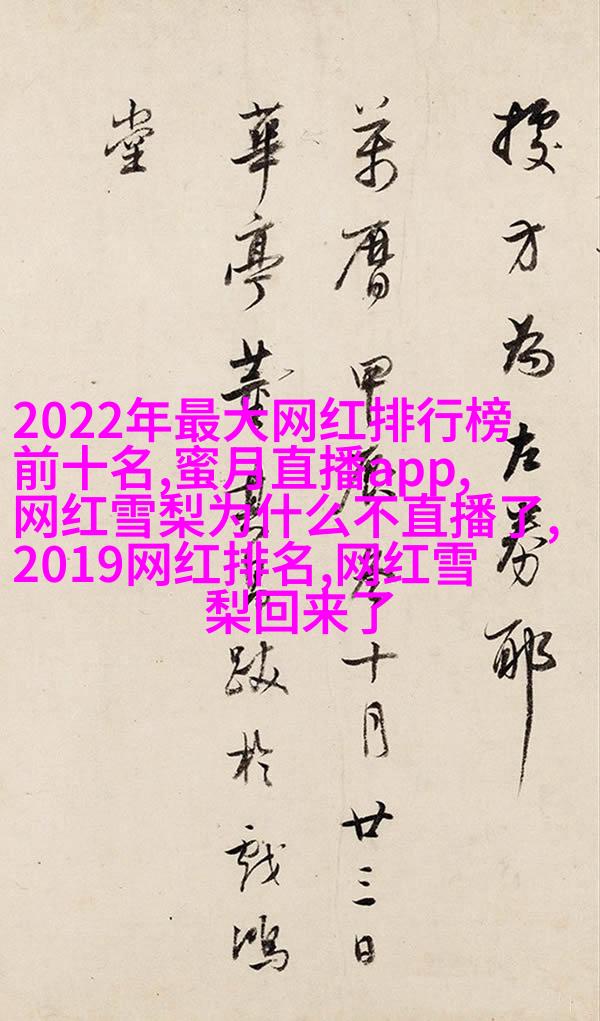 方為左券耶
萬曆甲辰冬十月廿三日
華亭董其昌書跋於戲鴻
堂
2022年最大网红排行榜
前十名,蜜月直播app,
网红雪梨为什么不直播了,
2019网红排名,网红雪
梨回来了